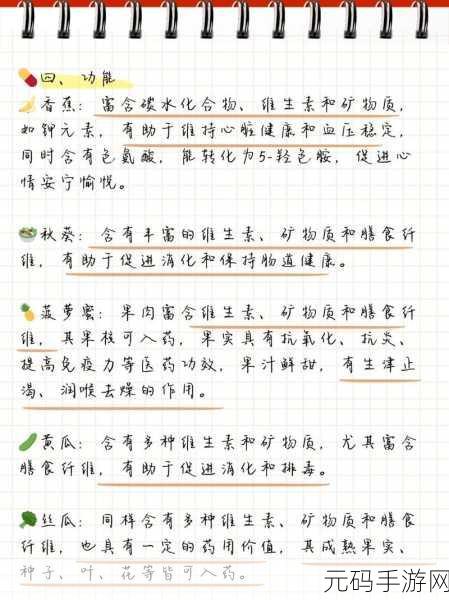 四、功能
香蕉：富含碳水化合物、维生素和矿物质，
如钾元素，有助于维持心脏健康和血压稳定，
同时含有色氨酸，能转化为5-羟色胺，促进心
情安宁愉悦。
秋葵：含有丰富的维生素、矿物质和膳食纤
维，有助于促进消化和保持肠道健康。
菠萝蜜：果肉富含维生素、矿物质和膳食纤
维，其果核可入药，果实具有抗氧化、抗炎、
提高免疫力等医药功效，果汁鲜甜，有生津止
渴、润喉去燥的作用。
黄瓜：含有多种维生素和矿物质，尤其富含
膳食纤维，有助于促进消化和排毒。
丝瓜：同样含有多种维生素、矿物质和膳食
纤维，也具有一定的药用价值，其成熟果实、
种子、叶、花等皆可入药。
元码手游网